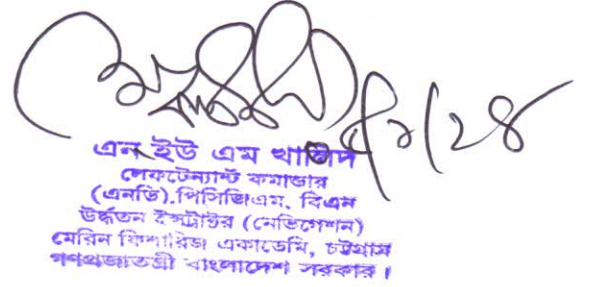 ০৫/৯/২৪
এন ইউ এম খালিদ
লেফটেন্যান্ট কমান্ডার
(এনডি).পিসিজিএম, বিএন
উর্ধ্বতন ইন্সট্রাক্টর (নেভিগেশন)
মেরিন ফিশারিজ একাডেমি, চট্টগ্রাম
গণপ্রজাতন্ত্রী বাংলাদেশ সরকার।